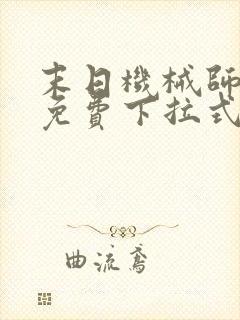 末日機械師
免費下拉式
曲流鳶